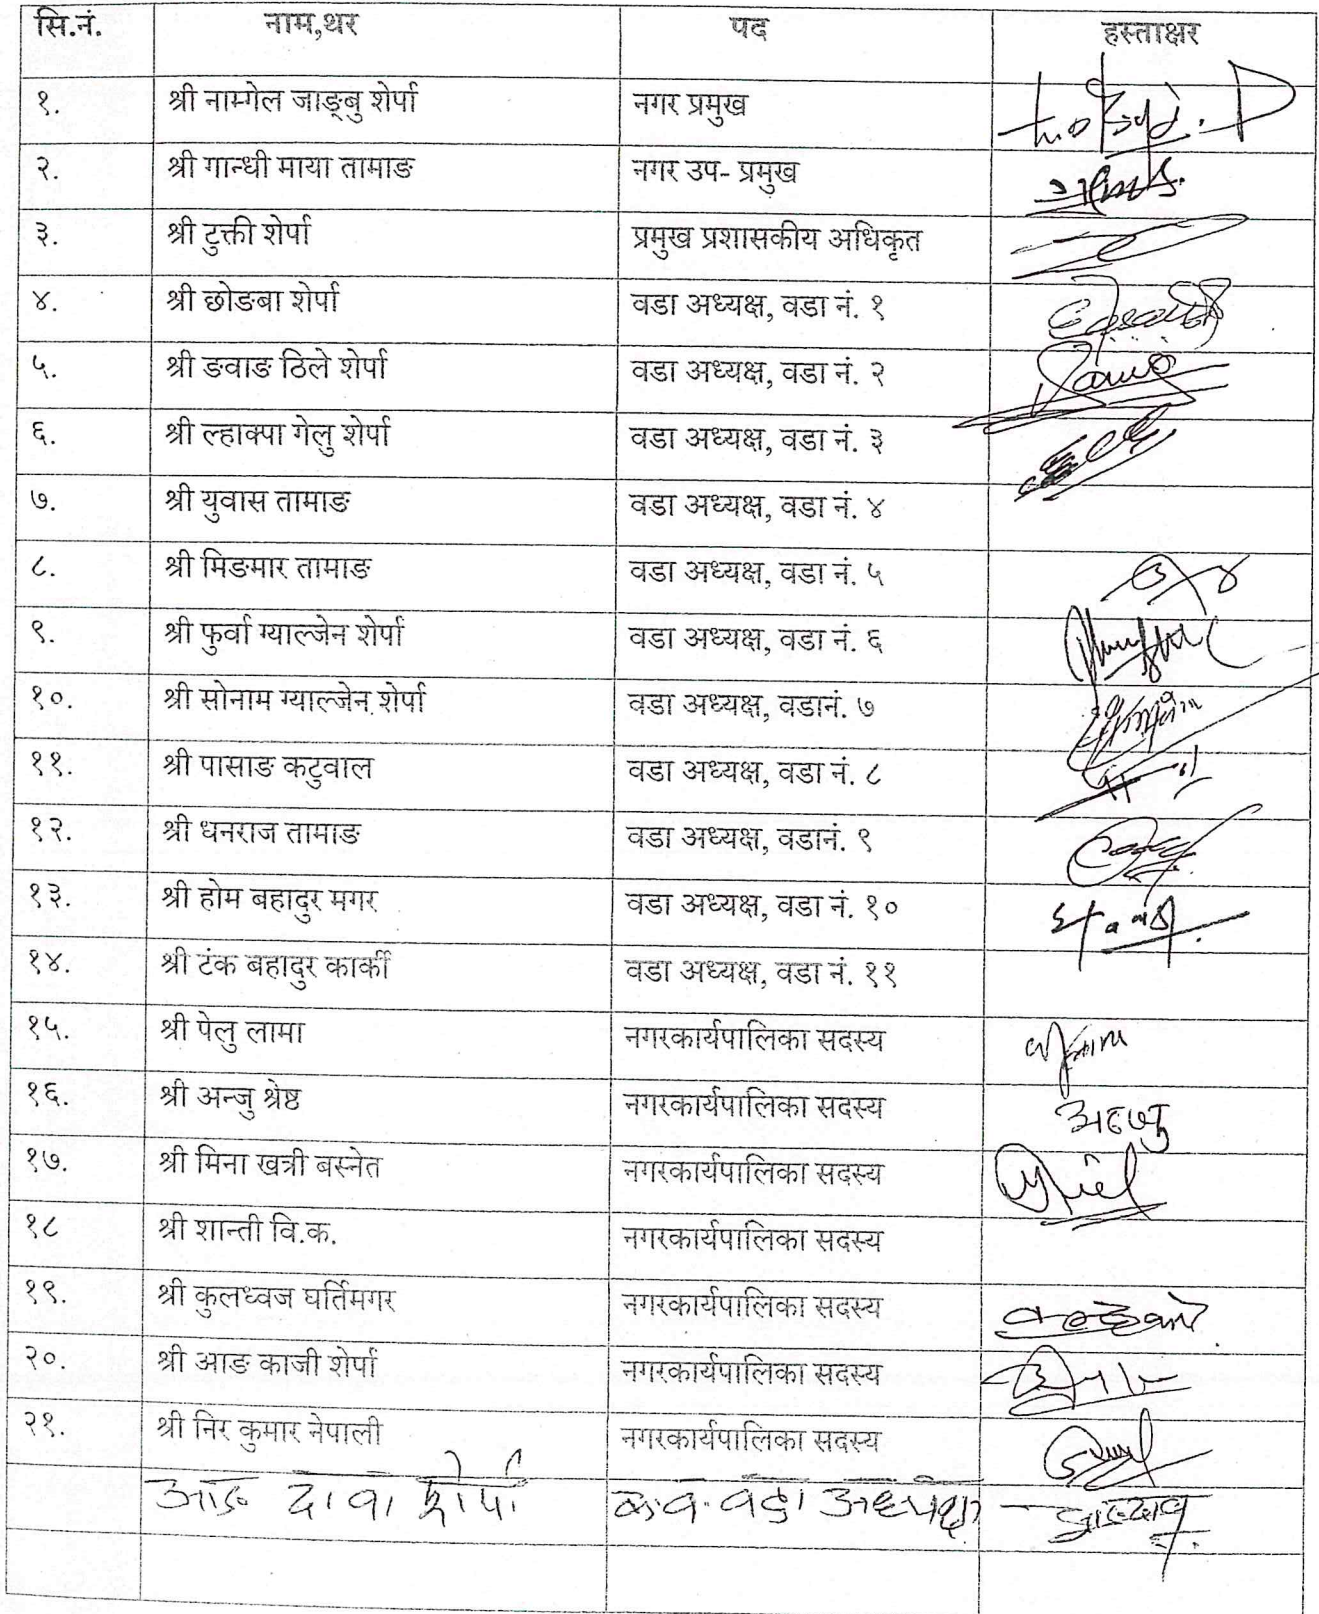 सि.नं. नाम,थर पद हस्ताक्षर
१. श्री नाम्गेल जाङ्बु शेर्पा नगर प्रमुख
२. श्री गान्धी माया तामाङ नगर उप- प्रमुख
३. श्री टुक्ती शेर्पा प्रमुख प्रशासकीय अधिकृत
४. श्री छोङबा शेर्पा वडा अध्यक्ष, वडा नं. १
५. श्री ङवाङ ठिले शेर्पा वडा अध्यक्ष, वडा नं. २
६. श्री ल्हाक्पा गेलु शेर्पा वडा अध्यक्ष, वडा नं. ३
७. श्री युवास तामाङ वडा अध्यक्ष, वडा नं. ४
८. श्री मिङमार तामाङ वडा अध्यक्ष, वडा नं. ५
९. श्री फुर्वा ग्याल्जेन शेर्पा वडा अध्यक्ष, वडा नं. ६
१०. श्री सोनाम ग्याल्जेन शेर्पा वडा अध्यक्ष, वडानं. ७
११. श्री पासाङ कटुवाल वडा अध्यक्ष, वडा नं. ८
१२. श्री धनराज तामाङ वडा अध्यक्ष, वडानं. ९
१३. श्री होम बहादुर मगर वडा अध्यक्ष, वडा नं. १०
१४. श्री टंक बहादुर कार्की वडा अध्यक्ष, वडा नं. ११
१५. श्री पेलु लामा नगरकार्यपालिका सदस्य
१६. श्री अन्जु श्रेष्ठ नगरकार्यपालिका सदस्य अन्जु
१७. श्री मिना खत्री बस्नेत नगरकार्यपालिका सदस्य
१८ श्री शान्ती वि.क. नगरकार्यपालिका सदस्य
१९. श्री कुलध्वज घर्तिमगर नगरकार्यपालिका सदस्य
२०. श्री आङ काजी शेर्पा नगरकार्यपालिका सदस्य
२१. श्री निर कुमार नेपाली नगरकार्यपालिका सदस्य
आङ दावा शेर्पा का.व. वडा अध्यक्ष